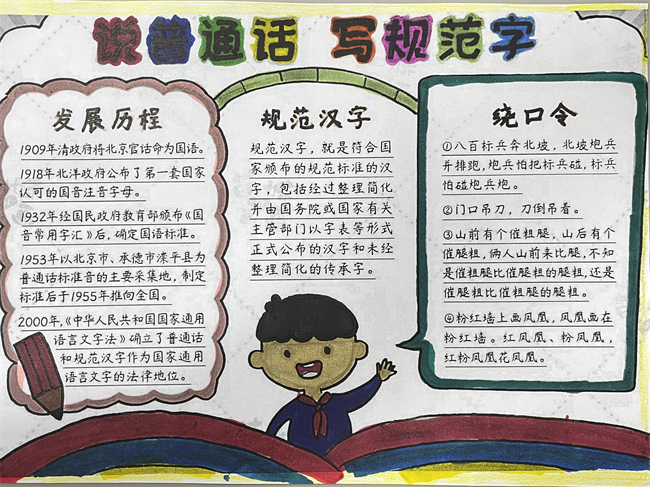 说普通话 写规范字
发展历程
1909年清政府将北京官话命为国语。
1918年北洋政府公布了第一套国家
认可的国音注音字母。
1932年经国民政府教育部颁布《国
音常用字汇》后，确定国语标准。
1953年以北京市、承德市滦平县为
普通话标准音的主要采集地，制定
标准后于1955年推向全国。
2000年，《中华人民共和国国家通用
语言文字法》确立了普通话
和规范汉字作为国家通用
语言文字的法律地位。
规范汉字
规范汉字，就是符合国
家颁布的规范标准的汉
字，包括经过整理简化
并由国务院或国家有关
主管部门以字表等形式
正式公布的汉字和未经
整理简化的传承字。
绕口令
①八百标兵奔北坡，北坡炮兵
并排跑，炮兵怕把标兵碰，标兵
怕碰炮兵炮。
②门口吊刀，刀倒吊着。
③山前有个催粗腿，山后有个
催腿粗，俩人山前来比腿，不知
是催粗腿比催腿粗的腿粗，还是
催腿粗比催粗腿的腿粗。
④粉红墙上画凤凰，凤凰画在
粉红墙。红凤凰、粉凤凰，
红粉凤凰花凤凰。